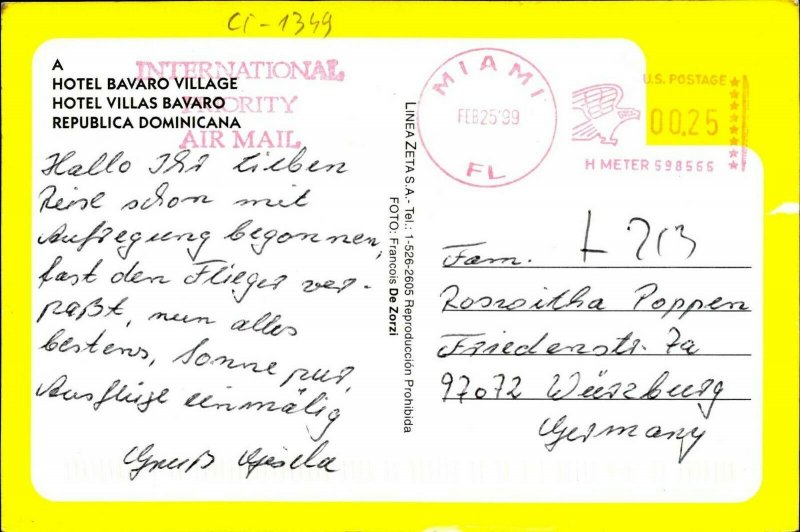 CT-1349
A
HOTEL BAVARO VILLAGE
HOTEL VILLAS BAVARO
REPUBLICA DOMINICANA
INTERNATIONAL
PRIORITY
AIR MAIL
Hallo Ihr Lieben
Reise schon mit
Aufregung begonnen,
fast den Flieger ver-
paßt, nun alles
bestens, Sonne pur,
Ausflüge einmalig
Gruß Gisela
LINEA ZETA S.A.- Tel.: 1-526-2605 Reproducción Prohibida
FOTO: Francois De Zorzi
MIAMI
FEB25'99
FL
U.S. POSTAGE
00.25
H METER 598566
Fam.
Roswitha Poppen
Friedenstr. 7a
97072 Würzburg
Germany